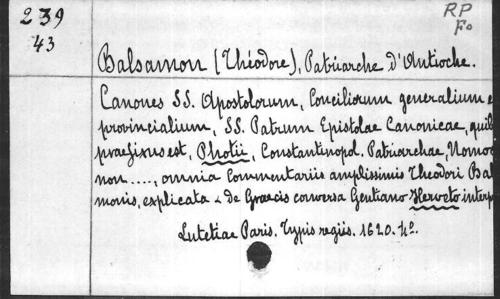 239
43
RP
Fo
Balsamon (Théodore), Patriarche d'Antioche.
Canones SS. Apostolorum, Conciliorum generalium e
provincialium, SS. Patrum Epistolae Canonicae, quib
praefixus est, Photii, Constantinopol. Patriarchae, Nomoc
non...., omnia Commentariis amplissimis Theodori Bal
monis, explicata & de Graecis conversa Gentiano Herveto interp
Lutetiae Paris. Typis regiis. 1620. 4º.